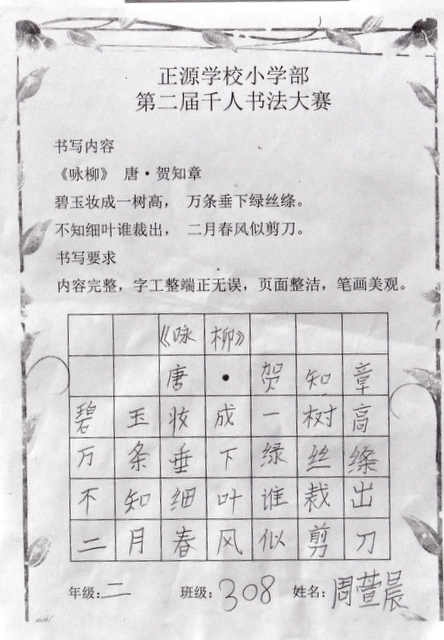 正源学校小学部
第二届千人书法大赛
书写内容
《咏柳》 唐·贺知章
碧玉妆成一树高， 万条垂下绿丝绦。
不知细叶谁裁出， 二月春风似剪刀。
书写要求
内容完整，字工整端正无误，页面整洁，笔画美观。
《咏柳》
唐·贺知章
碧玉妆成一树高
万条垂下绿丝绦
不知细叶谁裁出
二月春风似剪刀
年级:二 班级:308 姓名:周萱晨